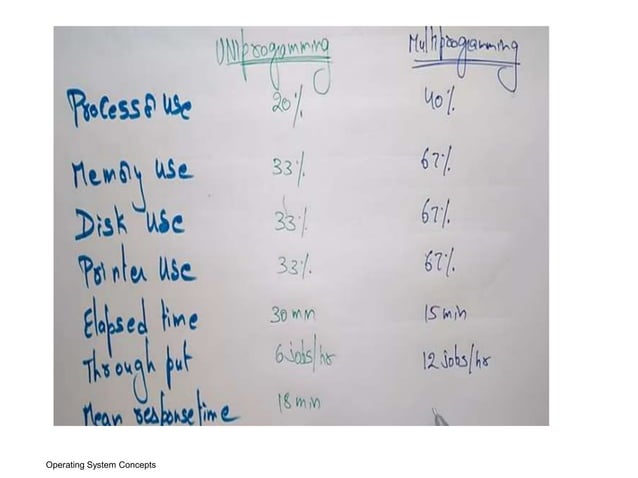 UNIprogramming Multiprogramming
Processor use 20% 40%
Memory use 33% 67%
Disk use 33% 67%
Pointer use 33% 67%
Elapsed time 30 min 15 min
Through put 6 jobs/hr 12 jobs/hr
Mean response time 18 min
Operating System Concepts